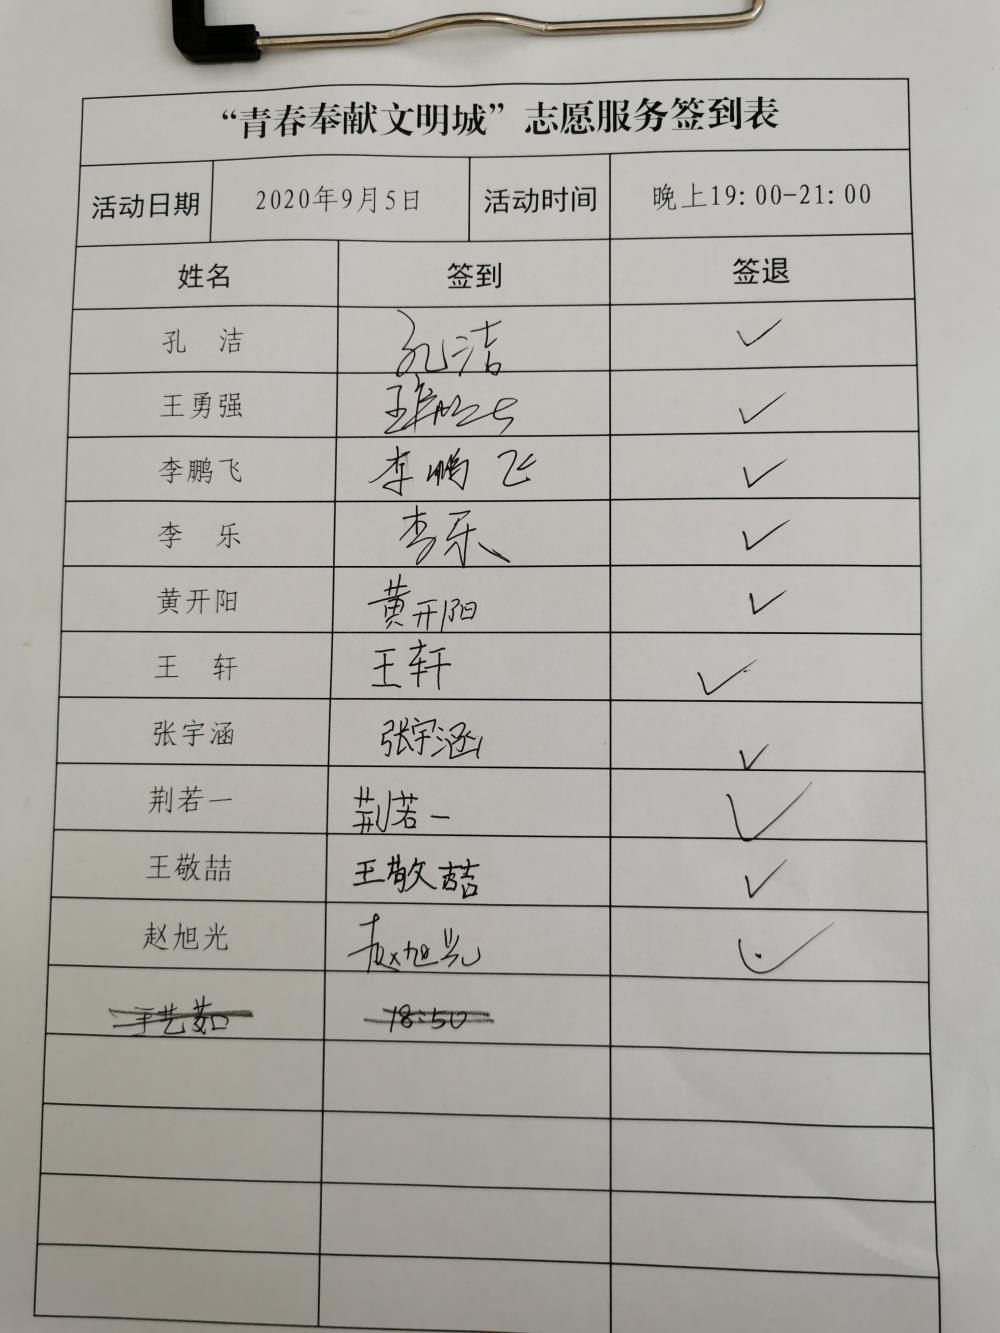 “青春奉献文明城”志愿服务签到表
活动日期 2020年9月5日 活动时间 晚上19:00-21:00
姓名 签到 签退
孔 洁 孔洁 ✓
王勇强 ✓
李鹏飞 李鹏飞 ✓
李 乐 李乐 ✓
黄开阳 黄开阳 ✓
王 轩 王轩 ✓
张宇涵 张宇涵 ✓
荆若一 荆若一 ✓
王敬喆 王敬喆 ✓
赵旭光 赵旭光 ✓
王艺茹 18:50